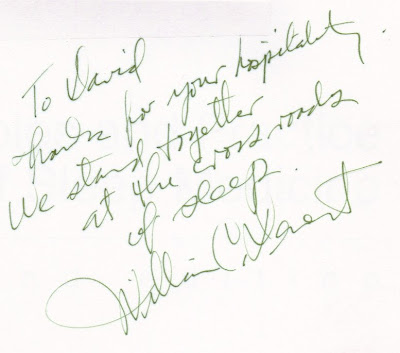 To David
thanks for your hospitality.
We stand together
at the cross roads
of sleep.
William C. Dement